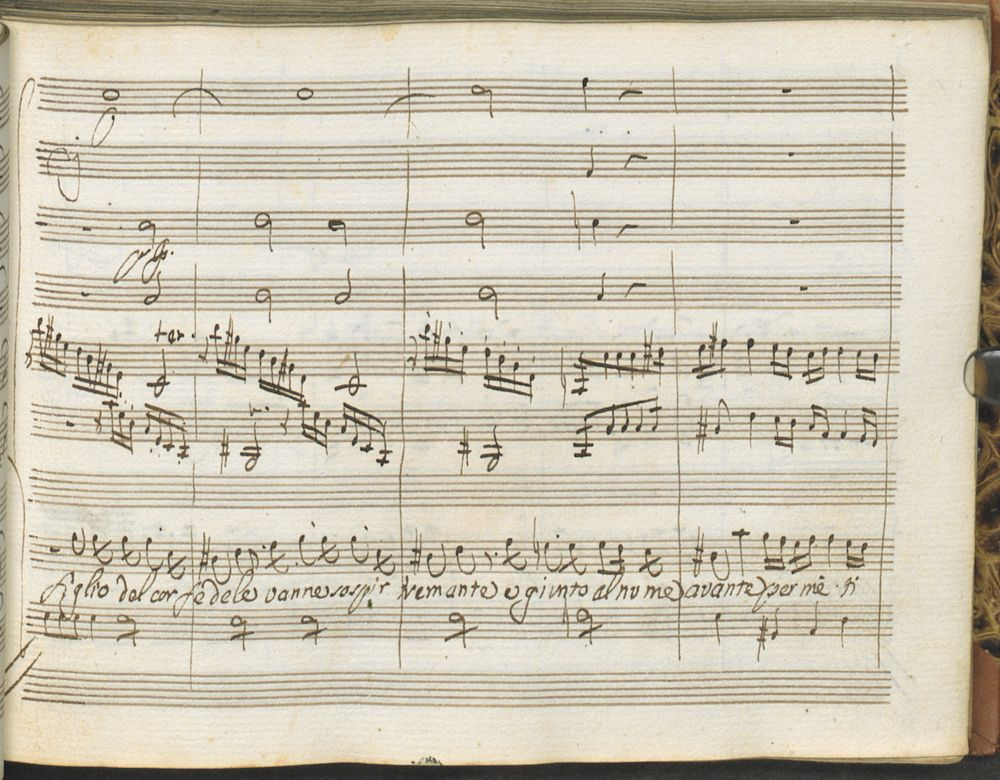 ter.
figlio del cor fedele vanne sospir tremante e giunto al nume avante per mè ti